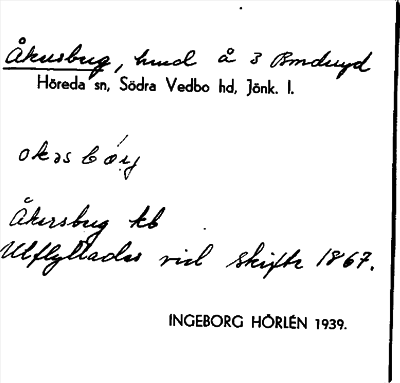 Åkersbug, hmd å 3 Bmdsryd
Höreda sn, Södra Vedbo hd, Jönk. l.
Åkersbug kb
Utflyttades vid skifte 1867.
INGEBORG HÖRLÉN 1939.